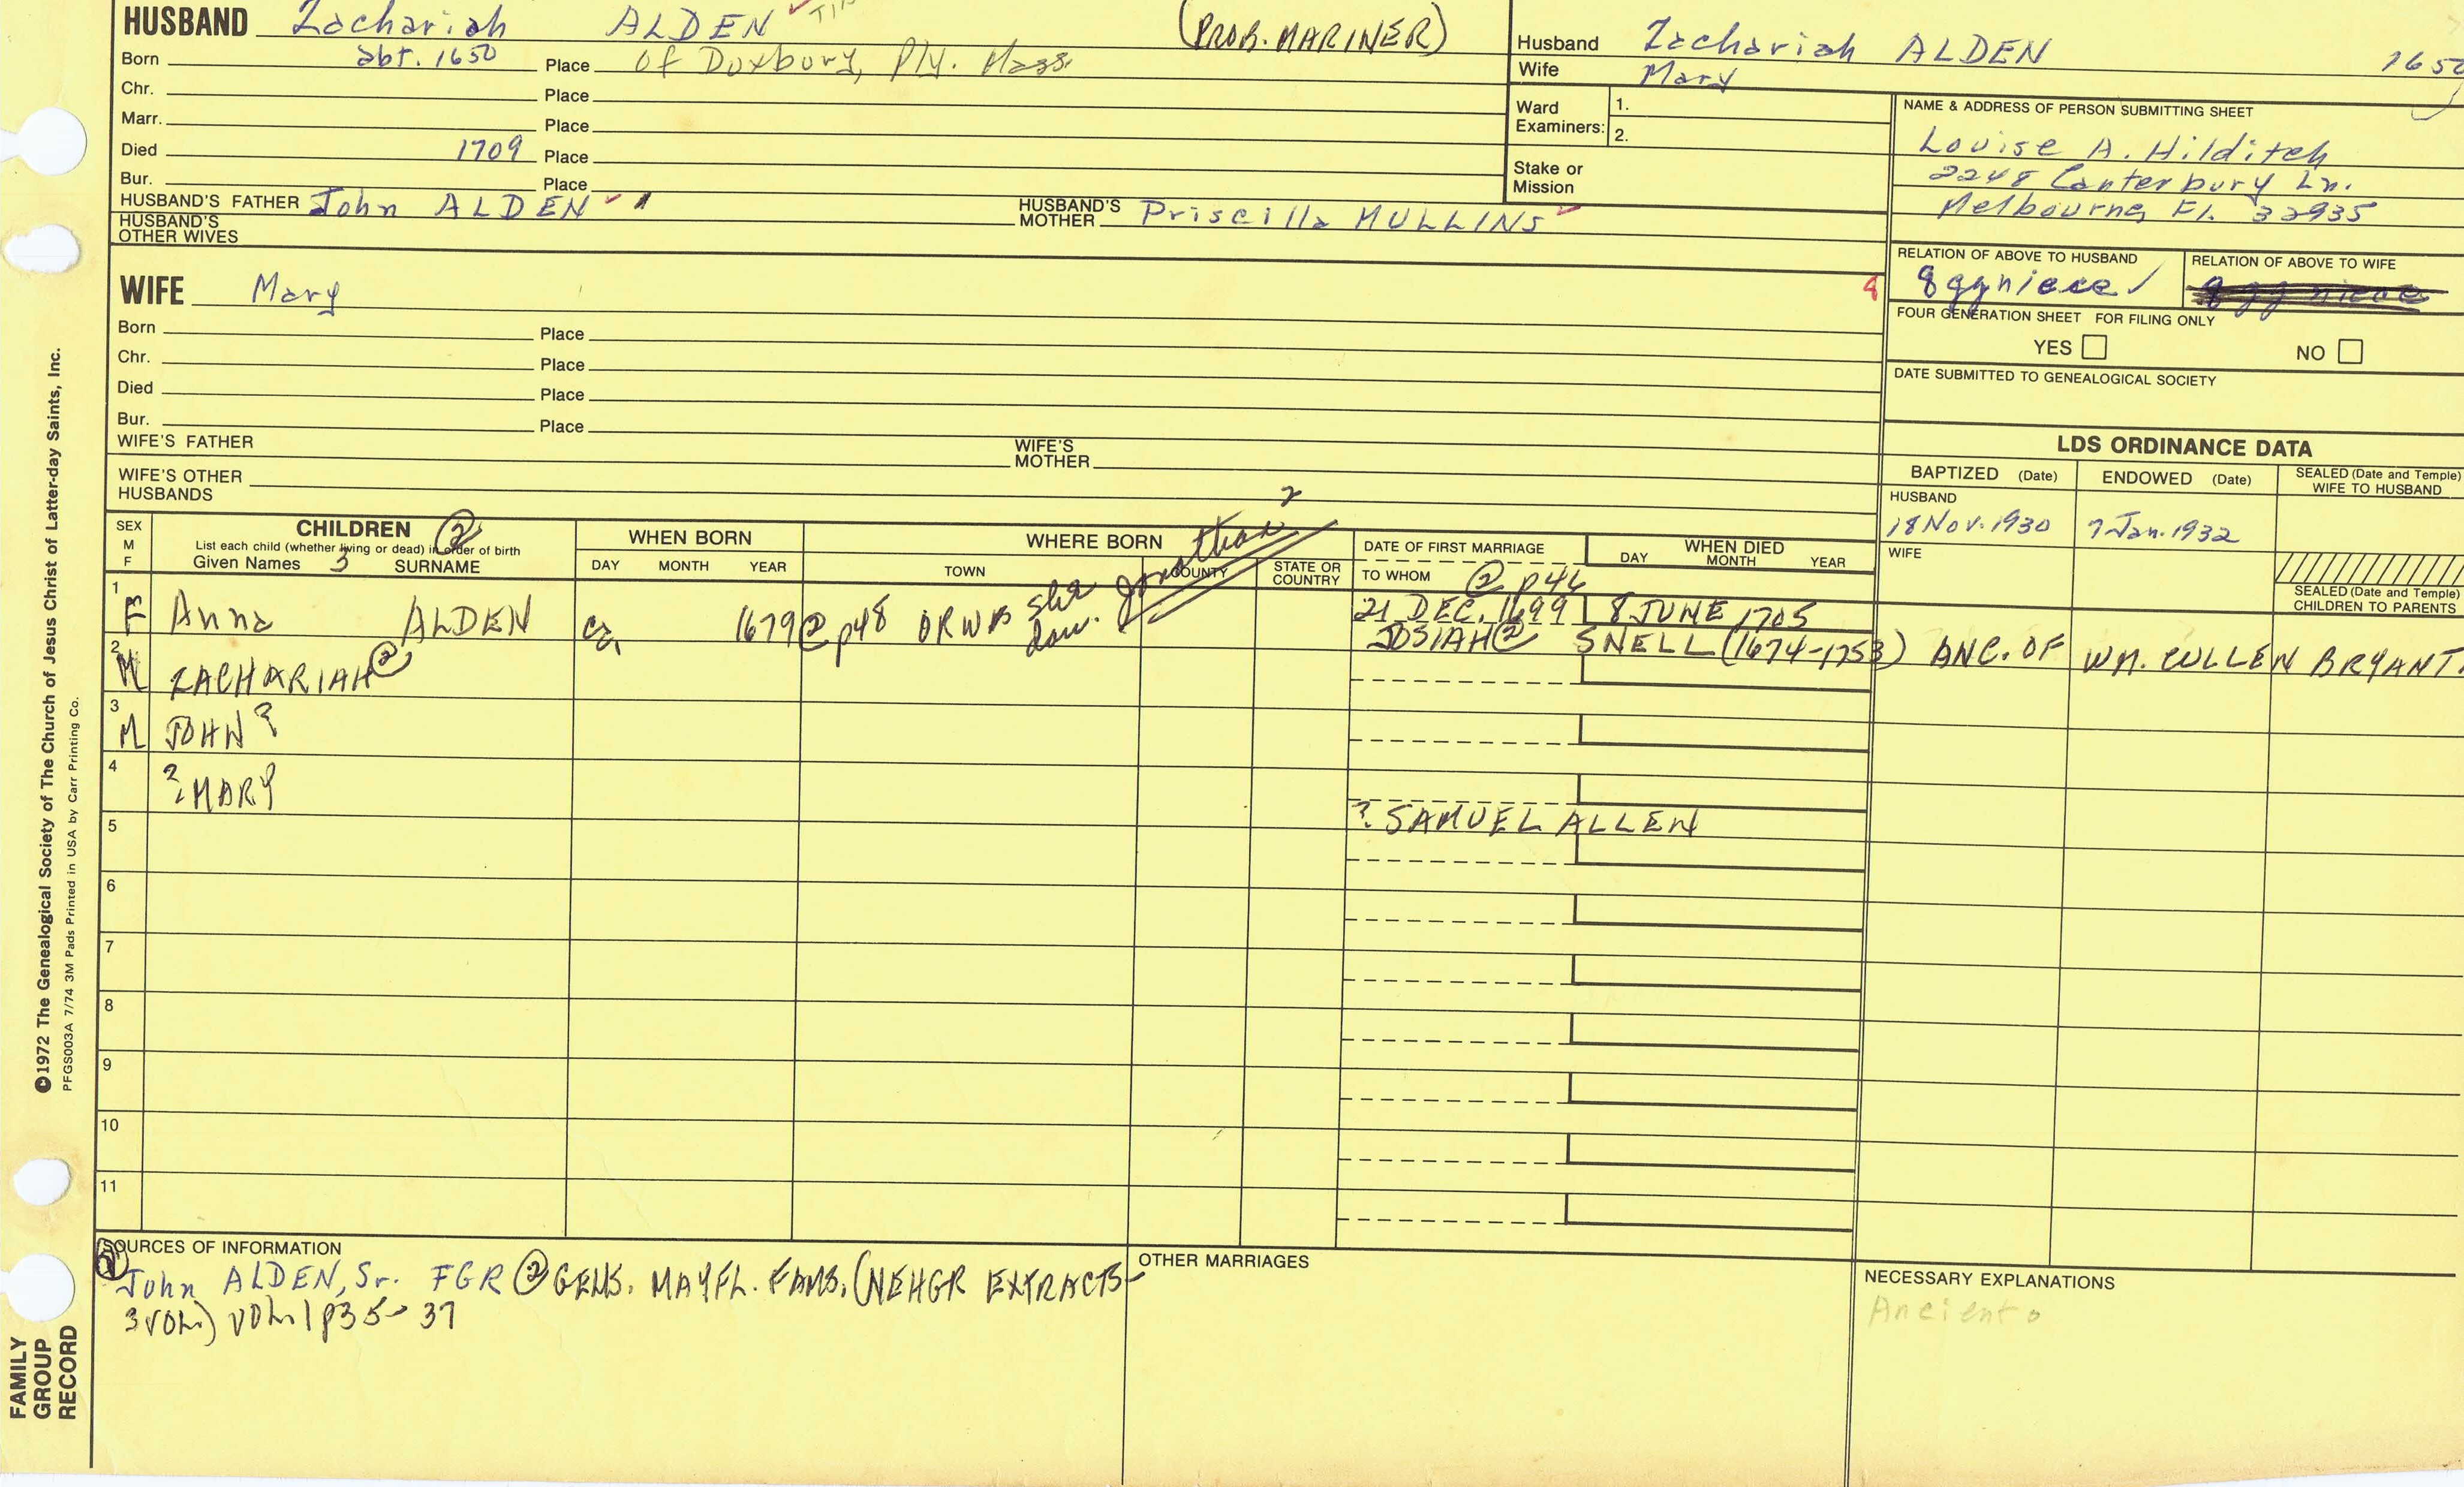 HUSBAND Zachariah ALDEN (PROB. MARINER)
Born abt. 1650 Place of Duxbury, Ply. Mass.
Chr. Place
Marr. Place
Died 1709 Place
Bur. Place
HUSBAND'S FATHER John ALDEN HUSBAND'S MOTHER Priscilla MULLINS
HUSBAND'S OTHER WIVES
Husband Zachariah ALDEN 1650
Wife Mary
Ward Examiners: 1.
2.
Stake or Mission
NAME & ADDRESS OF PERSON SUBMITTING SHEET
Louise A. Hilditch
2248 Canterbury Ln.
Melbourne, Fl. 32935
RELATION OF ABOVE TO HUSBAND RELATION OF ABOVE TO WIFE
8 ggniece
FOUR GENERATION SHEET FOR FILING ONLY
YES NO
DATE SUBMITTED TO GENEALOGICAL SOCIETY
WIFE Mary
Born Place
Chr. Place
Died Place
Bur. Place
WIFE'S FATHER WIFE'S MOTHER
WIFE'S OTHER HUSBANDS
LDS ORDINANCE DATA
BAPTIZED (Date) ENDOWED (Date) SEALED (Date and Temple) WIFE TO HUSBAND
HUSBAND
18 Nov. 1930 7 Jan. 1932
WIFE
SEALED (Date and Temple)
CHILDREN TO PARENTS
SEX M F
CHILDREN ②
List each child (whether living or dead) in order of birth
Given Names 3 SURNAME
WHEN BORN
DAY MONTH YEAR
WHERE BORN
TOWN COUNTY STATE OR COUNTRY
DATE OF FIRST MARRIAGE
TO WHOM ② p46
WHEN DIED
DAY MONTH YEAR
1 F Anna ALDEN ca. 1679 ② p48 OR WAS she dau. Jonathan ?
21 DEC. 1699 8 JUNE 1705
JOSIAH ② SNELL (1674-1753) ANC. OF WM. CULLEN BRYANT.
2 M ZACHARIAH ②
3 M JOHN ?
4 ? MARY
? SAMUEL ALLEN
5
6
7
8
9
10
11
SOURCES OF INFORMATION
John ALDEN, Sr. FGR ② GENS. MAYFL. FAMS. (NEHGR EXTRACTS-
3 VOL.) VOL. 1 p35-37
OTHER MARRIAGES
NECESSARY EXPLANATIONS
©1972 The Genealogical Society of The Church of Jesus Christ of Latter-day Saints, Inc.
PFGS003A 7/74 3M Pads Printed in USA by Carr Printing Co.
FAMILY
GROUP
RECORD